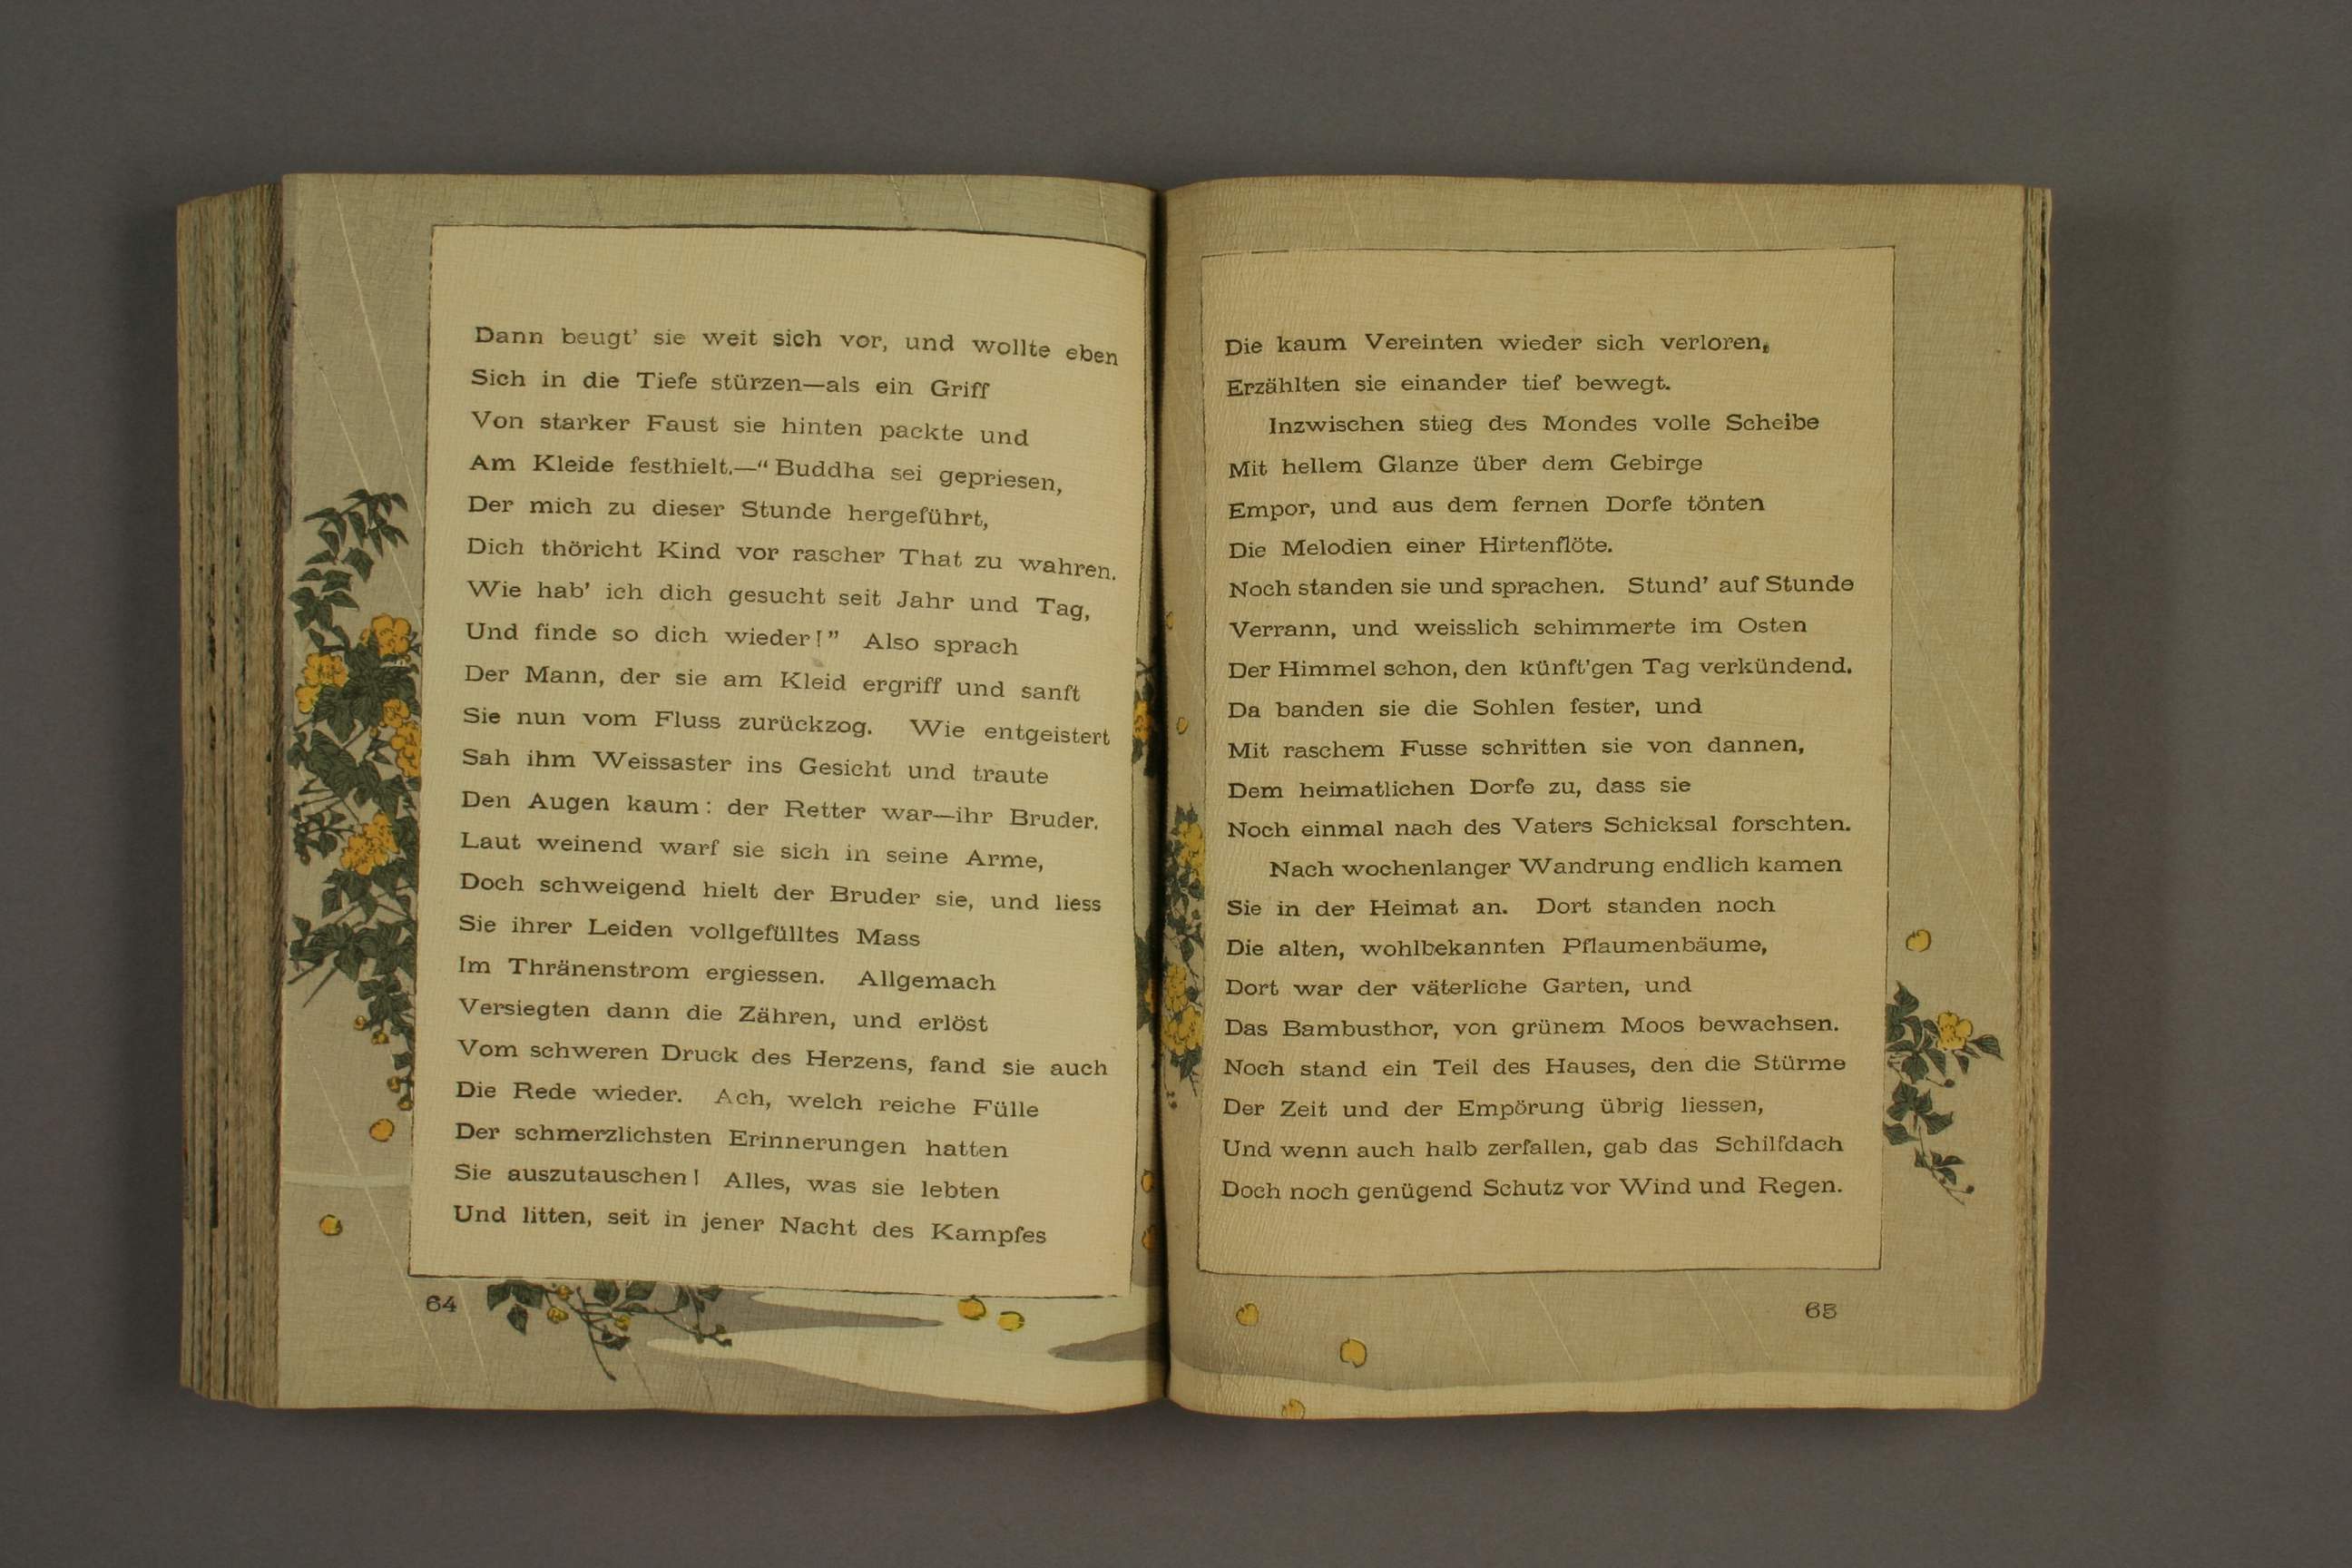 Dann beugt' sie weit sich vor, und wollte eben
Sich in die Tiefe stürzen—als ein Griff
Von starker Faust sie hinten packte und
Am Kleide festhielt.—“Buddha sei gepriesen,
Der mich zu dieser Stunde hergeführt,
Dich thöricht Kind vor rascher That zu wahren.
Wie hab' ich dich gesucht seit Jahr und Tag,
Und finde so dich wieder!” Also sprach
Der Mann, der sie am Kleid ergriff und sanft
Sie nun vom Fluss zurückzog. Wie entgeistert
Sah ihm Weissaster ins Gesicht und traute
Den Augen kaum: der Retter war—ihr Bruder.
Laut weinend warf sie sich in seine Arme,
Doch schweigend hielt der Bruder sie, und liess
Sie ihrer Leiden vollgefülltes Mass
Im Thränenstrom ergiessen. Allgemach
Versiegten dann die Zähren, und erlöst
Vom schweren Druck des Herzens, fand sie auch
Die Rede wieder. Ach, welch reiche Fülle
Der schmerzlichsten Erinnerungen hatten
Sie auszutauschen! Alles, was sie lebten
Und litten, seit in jener Nacht des Kampfes
64
Die kaum Vereinten wieder sich verloren,
Erzählten sie einander tief bewegt.
Inzwischen stieg des Mondes volle Scheibe
Mit hellem Glanze über dem Gebirge
Empor, und aus dem fernen Dorfe tönten
Die Melodien einer Hirtenflöte.
Noch standen sie und sprachen. Stund' auf Stunde
Verrann, und weisslich schimmerte im Osten
Der Himmel schon, den künft'gen Tag verkündend.
Da banden sie die Sohlen fester, und
Mit raschem Fusse schritten sie von dannen,
Dem heimatlichen Dorfe zu, dass sie
Noch einmal nach des Vaters Schicksal forschten.
Nach wochenlanger Wandrung endlich kamen
Sie in der Heimat an. Dort standen noch
Die alten, wohlbekannten Pflaumenbäume,
Dort war der väterliche Garten, und
Das Bambusthor, von grünem Moos bewachsen.
Noch stand ein Teil des Hauses, den die Stürme
Der Zeit und der Empörung übrig liessen,
Und wenn auch halb zerfallen, gab das Schilfdach
Doch noch genügend Schutz vor Wind und Regen.
65